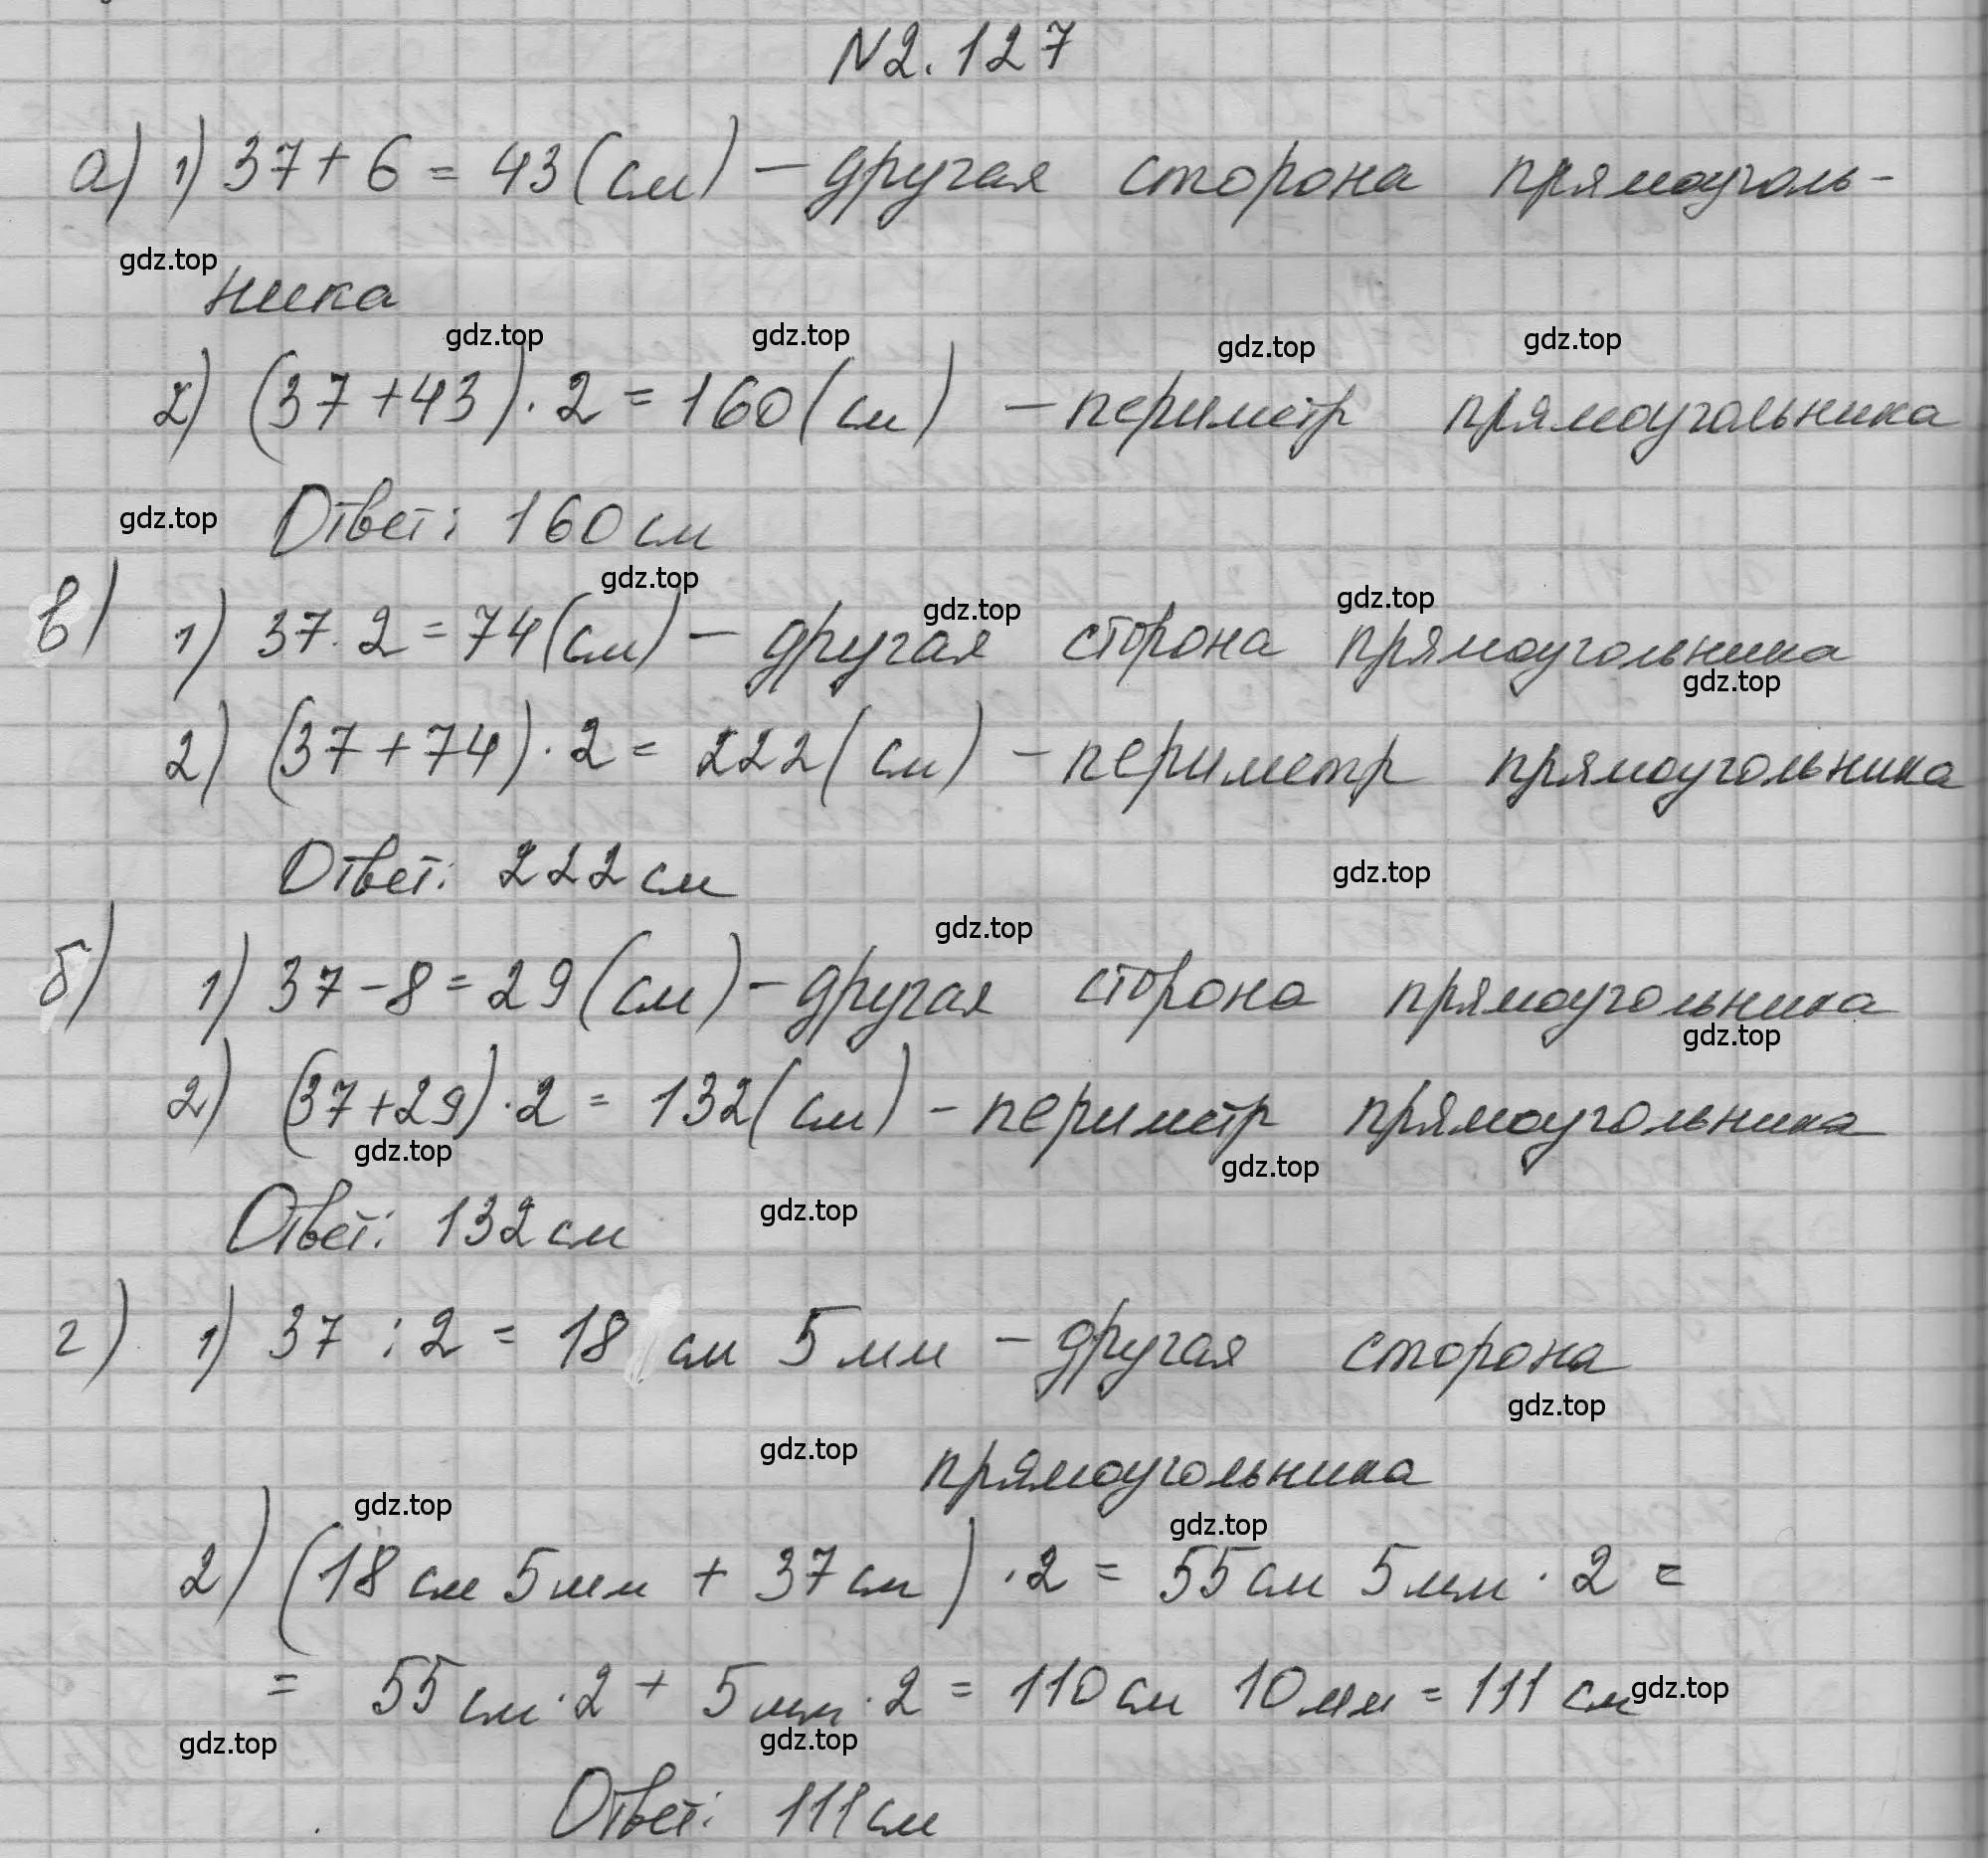 №2.127
а) 1) 37 + 6 = 43 (см) – другая сторона прямоуголь-
gdz.top
ника
gdz.top gdz.top gdz.top gdz.top
2) (37 + 43) · 2 = 160 (см) – периметр прямоугольника
gdz.top Ответ: 160 см
gdz.top gdz.top gdz.top
в) 1) 37 · 2 = 74 (см) – другая сторона прямоугольника
gdz.top
2) (37 + 74) · 2 = 222 (см) – периметр прямоугольника
Ответ: 222 см gdz.top
gdz.top
б) 1) 37 – 8 = 29 (см) – другая сторона прямоугольника
gdz.top
2) (37 + 29) · 2 = 132 (см) – периметр прямоугольника
gdz.top gdz.top
Ответ: 132 см gdz.top
г) 1) 37 : 2 = 18 см 5 мм – другая сторона
gdz.top
gdz.top прямоугольника
gdz.top gdz.top
2) (18 см 5 мм + 37 см) · 2 = 55 см 5 мм · 2 =
= 55 см · 2 + 5 мм · 2 = 110 см 10 мм = 111 см gdz.top
gdz.top gdz.top
Ответ: 111 см